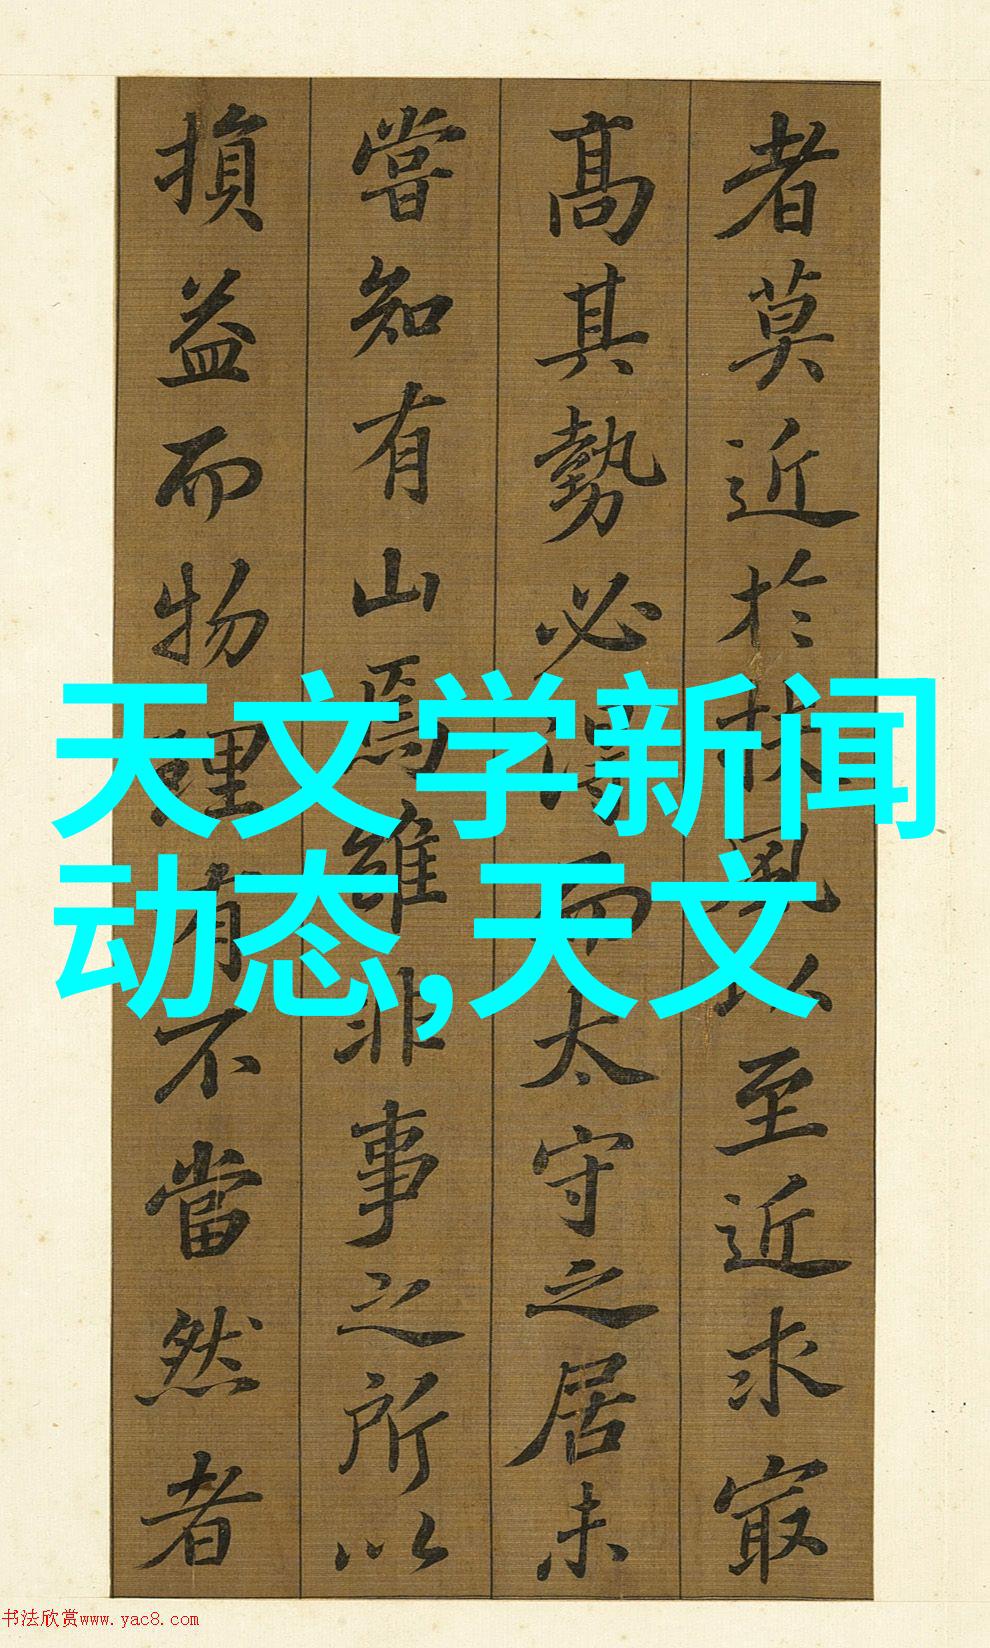 者莫近於扶風以至近求㝡
高其勢必得而太守之居未
嘗知有山焉雖非事之所以
損益而物理有不當然者
天文学新闻
动态,天文
书法欣赏www.yac8.com